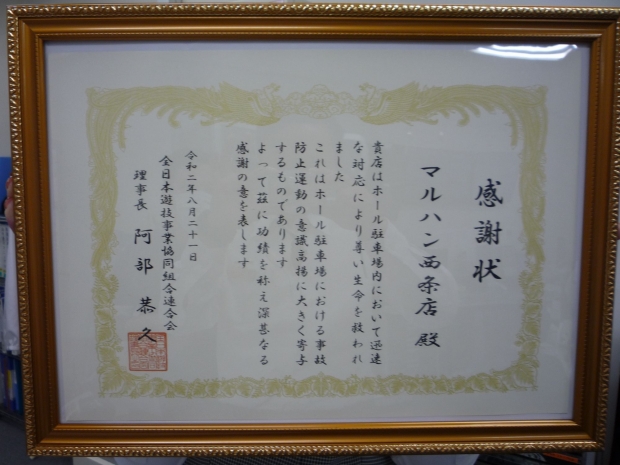 感謝状
マルハン西条店 殿
貴店はホール駐車場内において迅速
な対応により尊い生命を救われ
ました
これはホール駐車場における事故
防止運動の意識高揚に大きく寄与
するものであります
よって茲に功績を称え深甚なる
感謝の意を表します
令和二年八月二十一日
全日本遊技事業協同組合連合会
理事長 阿部 恭久